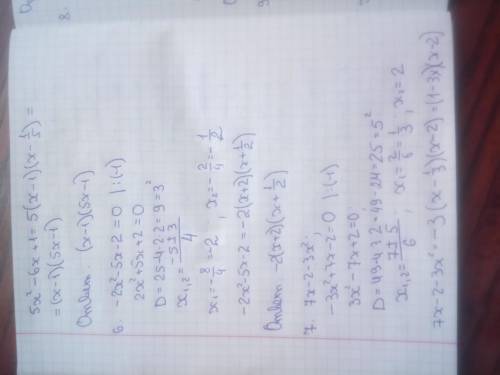 8.
5x²-6x+1=5(x-1)(x-1/5)=
=(x-1)(5x-1)
Ответ (x-1)(5x-1)
6. -2x²-5x-2=0 |:(-1)
2x²+5x+2=0
D=25-4·2·2=9=3²
x₁,₂=(-5±3)/4
x₁=-8/4=-2, x₂=-2/4=-1/2
-2x²-5x-2=-2(x+2)(x+1/2)
Ответ -2(x+2)(x+1/2)
7. 7x-2-3x²;
-3x²+7x-2=0 |:(-1)
3x²-7x+2=0;
D=49-4·3·2=49-24=25=5²
x₁,₂=(7±5)/6, x₁=2/6=1/3, x₂=2
7x-2-3x²=-3(x-1/3)(x-2)=(1-3x)(x-2)